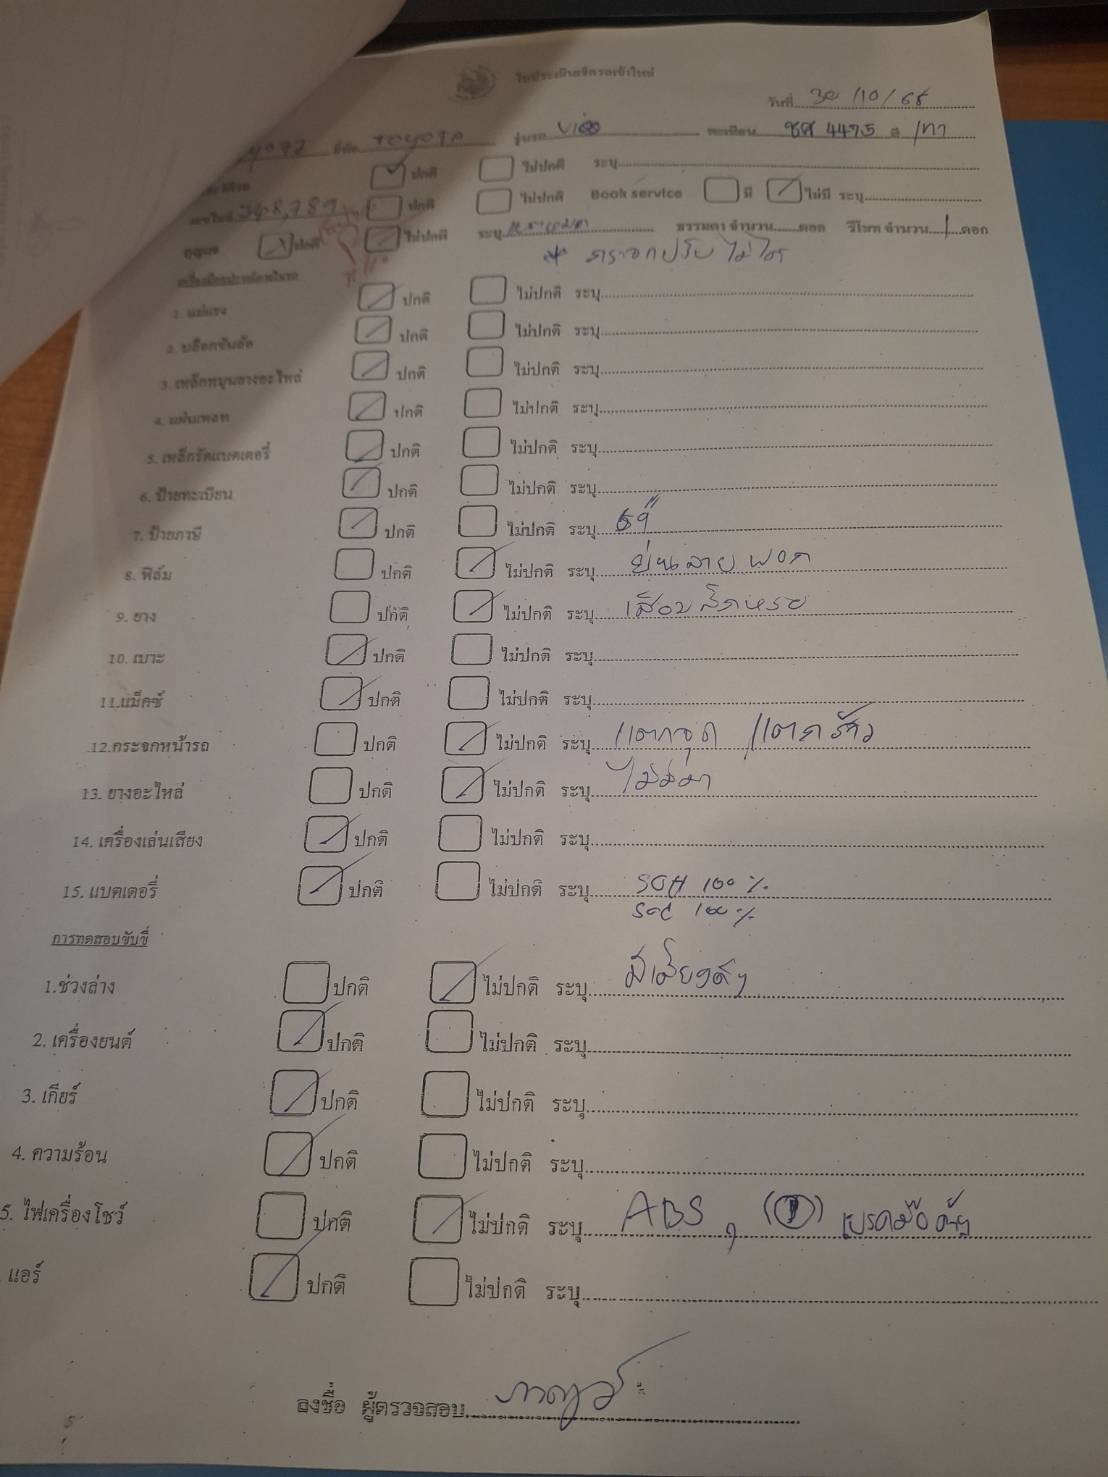 ใบประเมินสภาพรถเข้าใหม่
วันที่ 30/10/68
ยี่ห้อ TOYOTA รุ่นรถ VIOS ทะเบียน 4495 สี เทา
ปกติ ไม่ปกติ ระบุ
เลขไมล์ 348,789 ปกติ ไม่ปกติ Book service มี ไม่มี ระบุ
กุญแจ ปกติ ไม่ปกติ ระบุ ธรรมดา จำนวน ดอก รีโมท จำนวน 1 ดอก
* กระจกปรับไม่ได้
1. แม่แรง ปกติ ไม่ปกติ ระบุ
2. บล็อกขันล้อ ปกติ ไม่ปกติ ระบุ
3. เหล็กหมุนยางอะไหล่ ปกติ ไม่ปกติ ระบุ
4. แผ่นเพลท ปกติ ไม่ปกติ ระบุ
5. เหล็กรัดแบตเตอรี่ ปกติ ไม่ปกติ ระบุ
6. ป้ายทะเบียน ปกติ ไม่ปกติ ระบุ
7. ป้ายภาษี ปกติ ไม่ปกติ ระบุ 69
8. ฟิล์ม ปกติ ไม่ปกติ ระบุ
9. ยาง ปกติ ไม่ปกติ ระบุ
10. เบาะ ปกติ ไม่ปกติ ระบุ
11.แม็คซ์ ปกติ ไม่ปกติ ระบุ
12.กระจกหน้ารถ ปกติ ไม่ปกติ ระบุ แตกจุด แตกร้าว
13. ยางอะไหล่ ปกติ ไม่ปกติ ระบุ
14. เครื่องเล่นเสียง ปกติ ไม่ปกติ ระบุ
15. แบตเตอรี่ ปกติ ไม่ปกติ ระบุ SOH 100 %
SOC 100 %
การทดสอบขับขี่
1.ช่วงล่าง ปกติ ไม่ปกติ ระบุ มีเสียงดัง
2. เครื่องยนต์ ปกติ ไม่ปกติ ระบุ
3. เกียร์ ปกติ ไม่ปกติ ระบุ
4. ความร้อน ปกติ ไม่ปกติ ระบุ
5. ไฟเครื่องโชว์ ปกติ ไม่ปกติ ระบุ ABS, (!) เบรคมือค้าง
แอร์ ปกติ ไม่ปกติ ระบุ
ลงชื่อ ผู้ตรวจสอบ